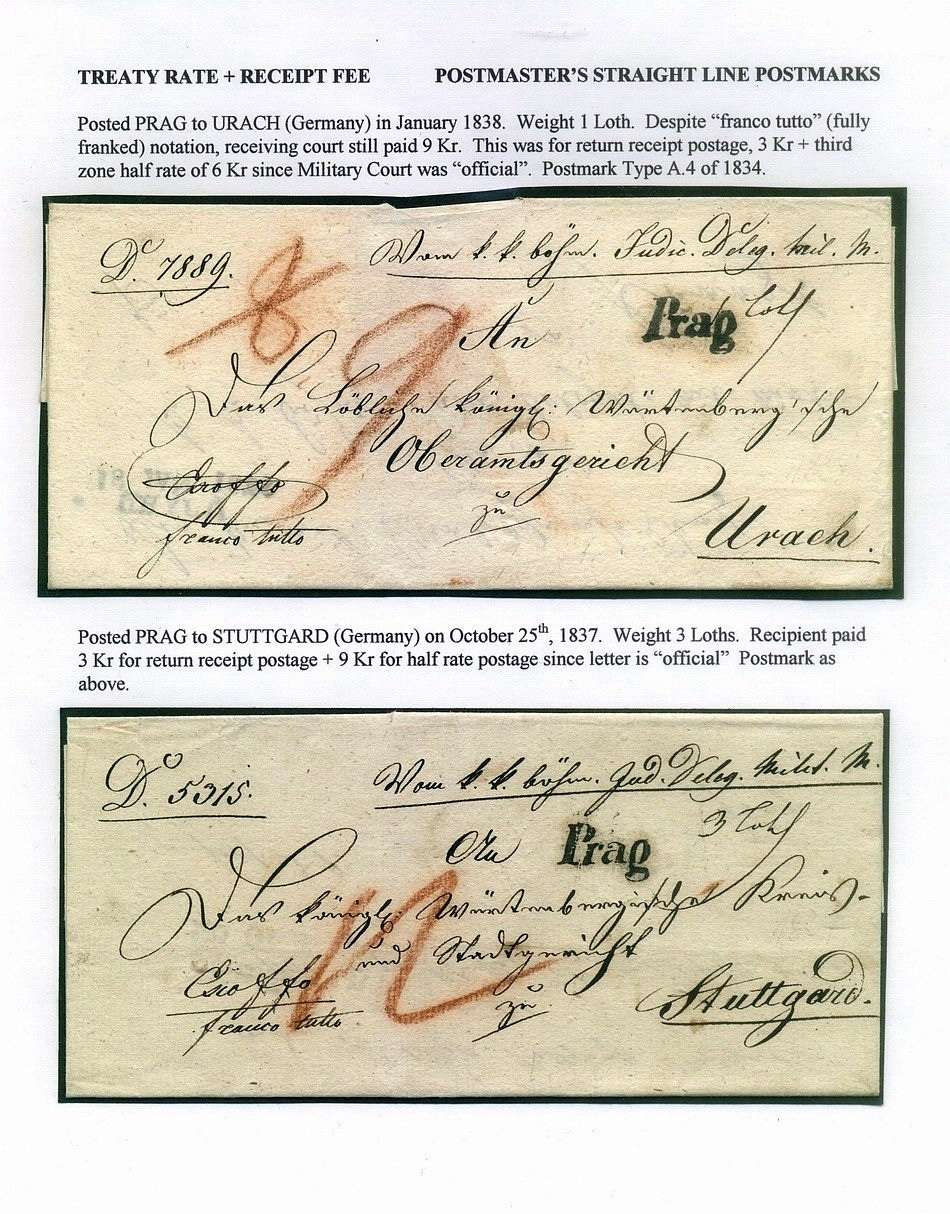 TREATY RATE + RECEIPT FEE POSTMASTER'S STRAIGHT LINE POSTMARKS
Posted PRAG to URACH (Germany) in January 1838. Weight 1 Loth. Despite “franco tutto” (fully
franked) notation, receiving court still paid 9 Kr. This was for return receipt postage, 3 Kr + third
zone half rate of 6 Kr since Military Court was “official”. Postmark Type A.4 of 1834.
Vom k. k. böhm. Judic. Deleg. Mil. M.
7889.
Prag
Loth
An
9
Das Löbliche königl: Würtenberg'sche
Oberamtsgericht
zu
franco tutto
Urach.
Posted PRAG to STUTTGARD (Germany) on October 25th, 1837. Weight 3 Loths. Recipient paid
3 Kr for return receipt postage + 9 Kr for half rate postage since letter is “official” Postmark as
above.
Vom k. k. böhm. Jud. Deleg. Milit. M.
5315.
3 Loth
An Prag
Das königl: Würtenbergische Kreis-
und Stadtgericht
12
zu
franco tutto
Stuttgard.